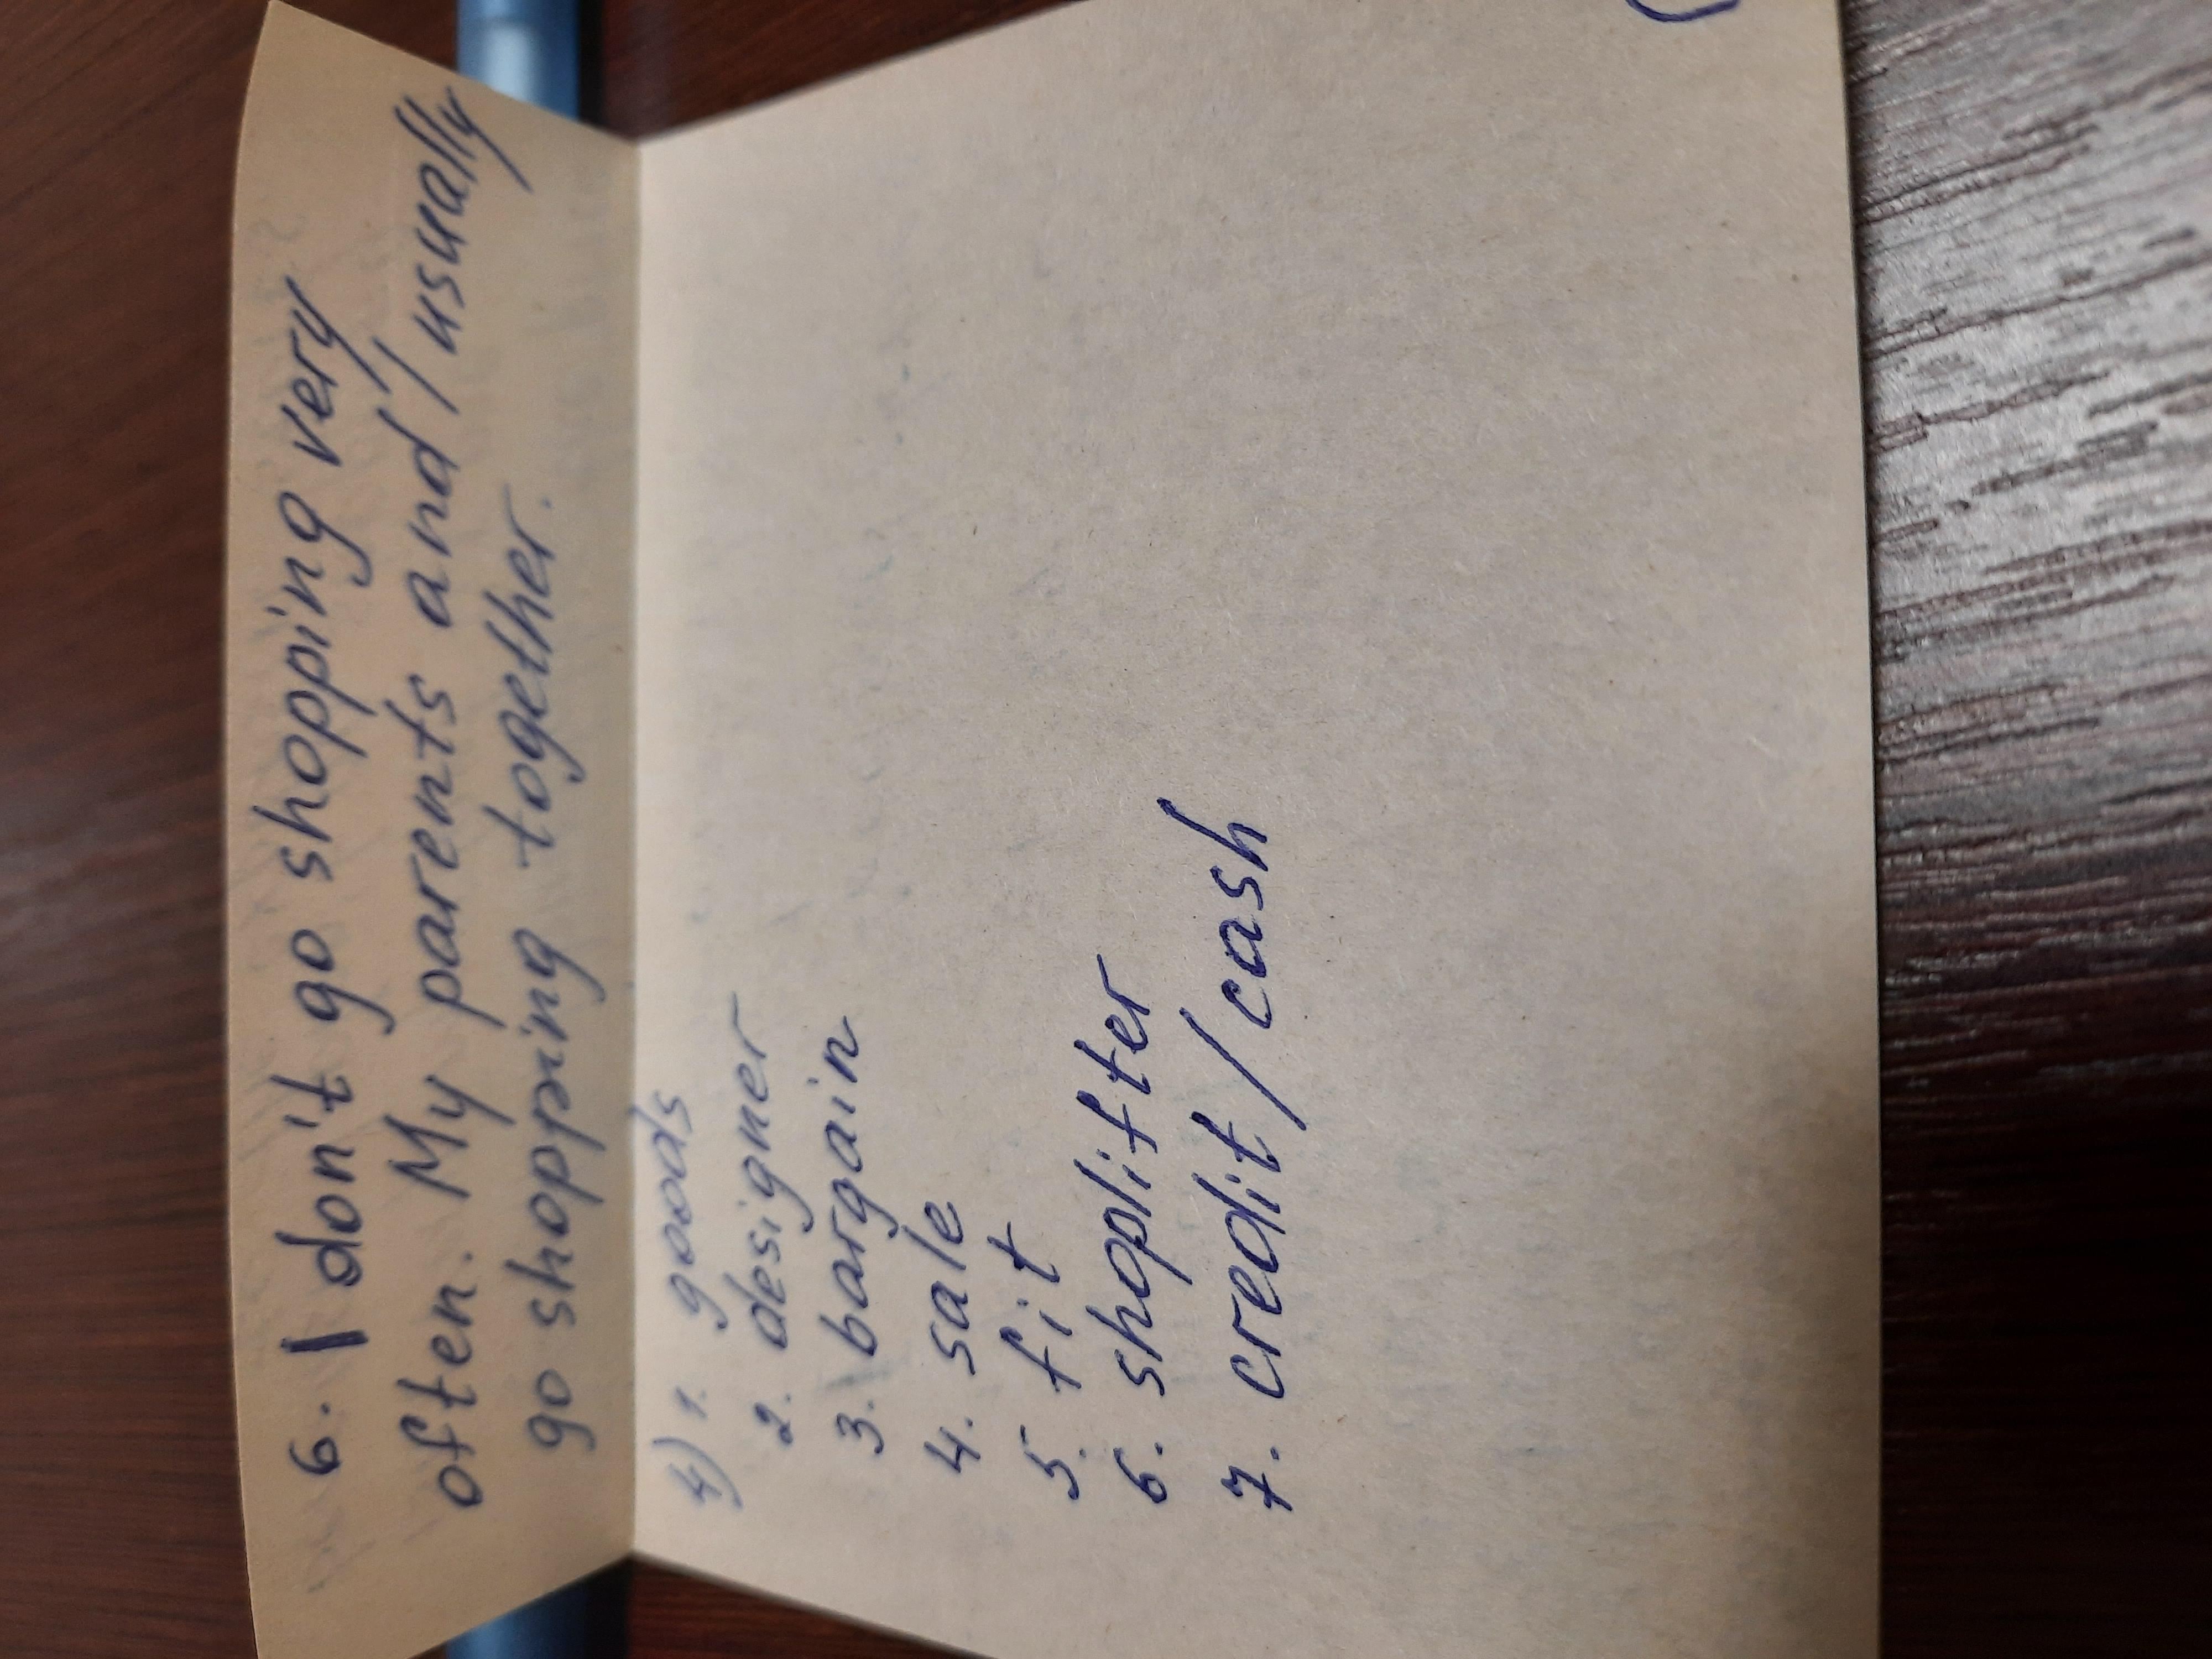 6. I don't go shopping very
often. My parents and I usually
go shopping together.
4) 1. goods
2. designer
3. bargain
4. sale
5. fit
6. shoplifter
7. credit/cash